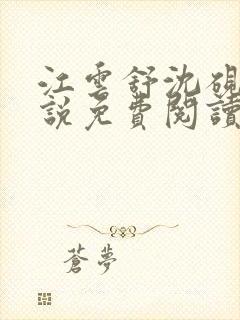 江雲舒沈硯
說免費閱讀
蒼夢